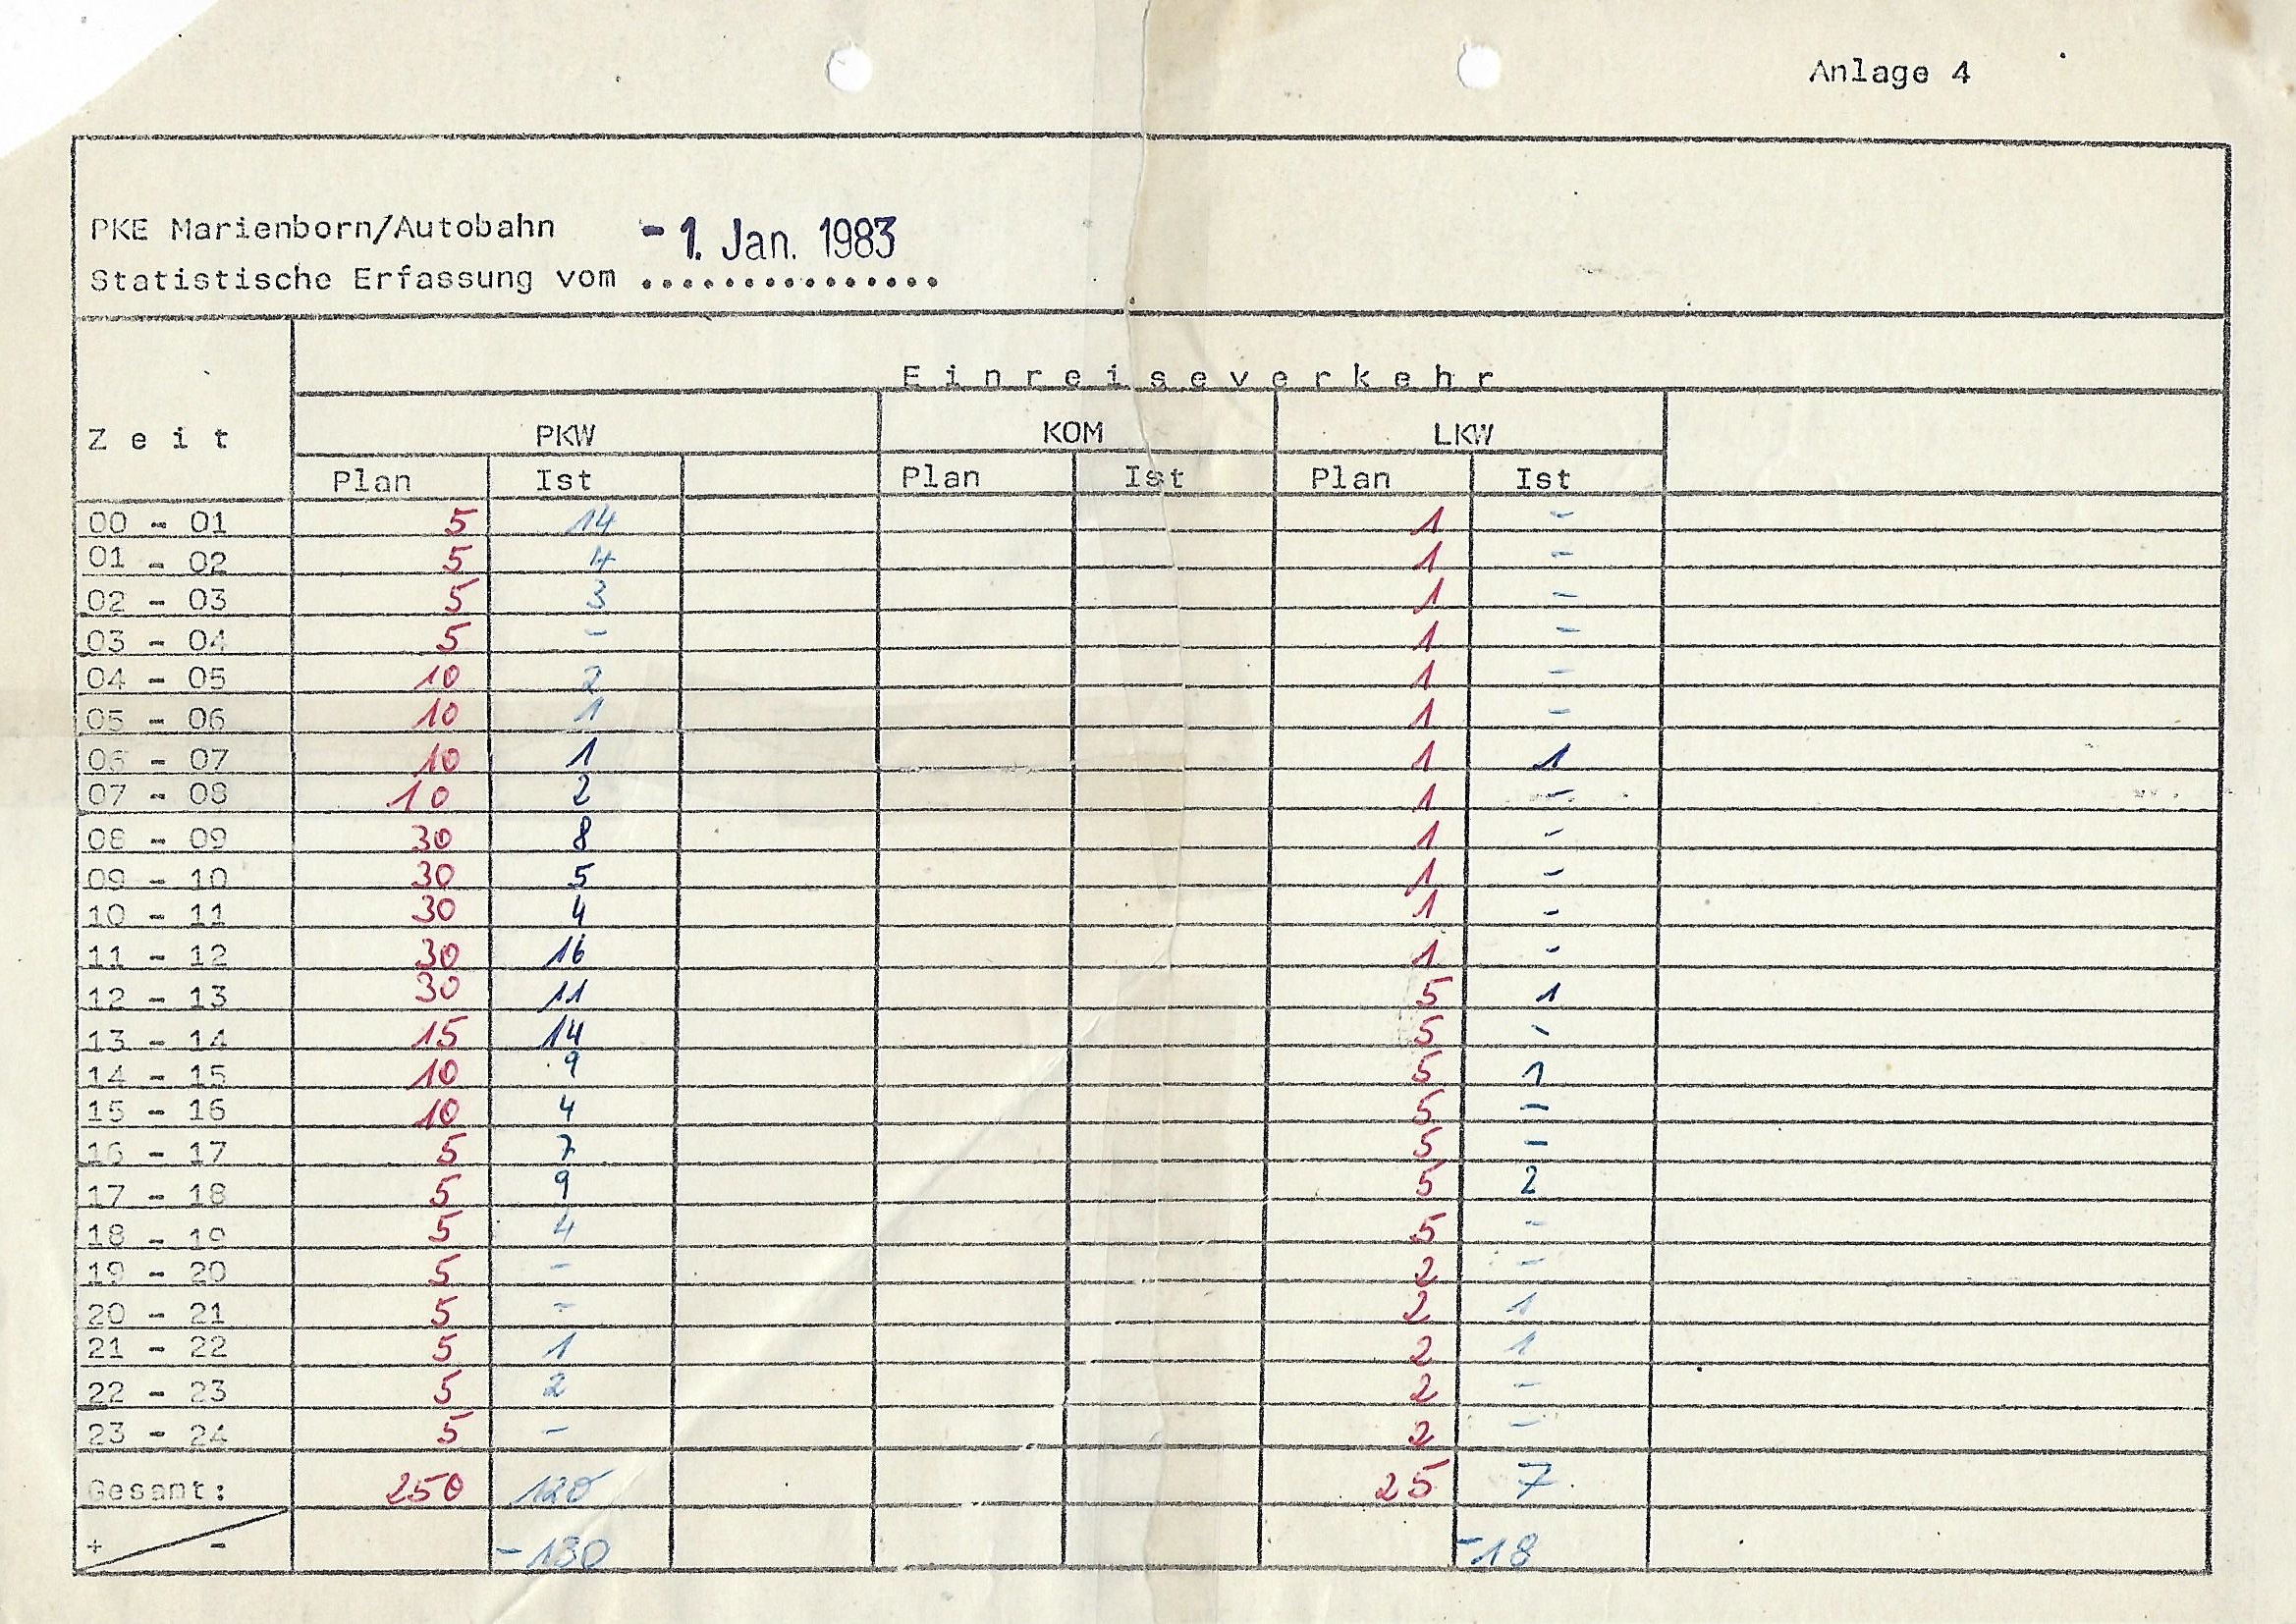 Anlage 4
PKE Marienborn/Autobahn - 1. Jan. 1983
Statistische Erfassung vom ...............
Einreiseverkehr
Zeit PKW KOM LKW
Plan Ist Plan Ist Plan Ist
00 - 01 5 14 1 -
01 - 02 5 4 1 -
02 - 03 5 3 1 -
03 - 04 5 - 1 -
04 - 05 10 2 1 -
05 - 06 10 1 1 -
06 - 07 10 1 1 1
07 - 08 10 2 1 -
08 - 09 30 8 1 -
09 - 10 30 5 1 -
10 - 11 30 4 1 -
11 - 12 30 16 1 -
12 - 13 30 11 5 1
13 - 14 15 14 5 -
14 - 15 10 9 5 1
15 - 16 10 4 5 -
16 - 17 5 7 5 -
17 - 18 5 9 5 2
18 - 19 5 4 5 -
19 - 20 5 - 2 -
20 - 21 5 - 2 1
21 - 22 5 1 2 1
22 - 23 5 2 2 -
23 - 24 5 - 2 -
Gesamt: 250 120 25 7
+ - -130 -18